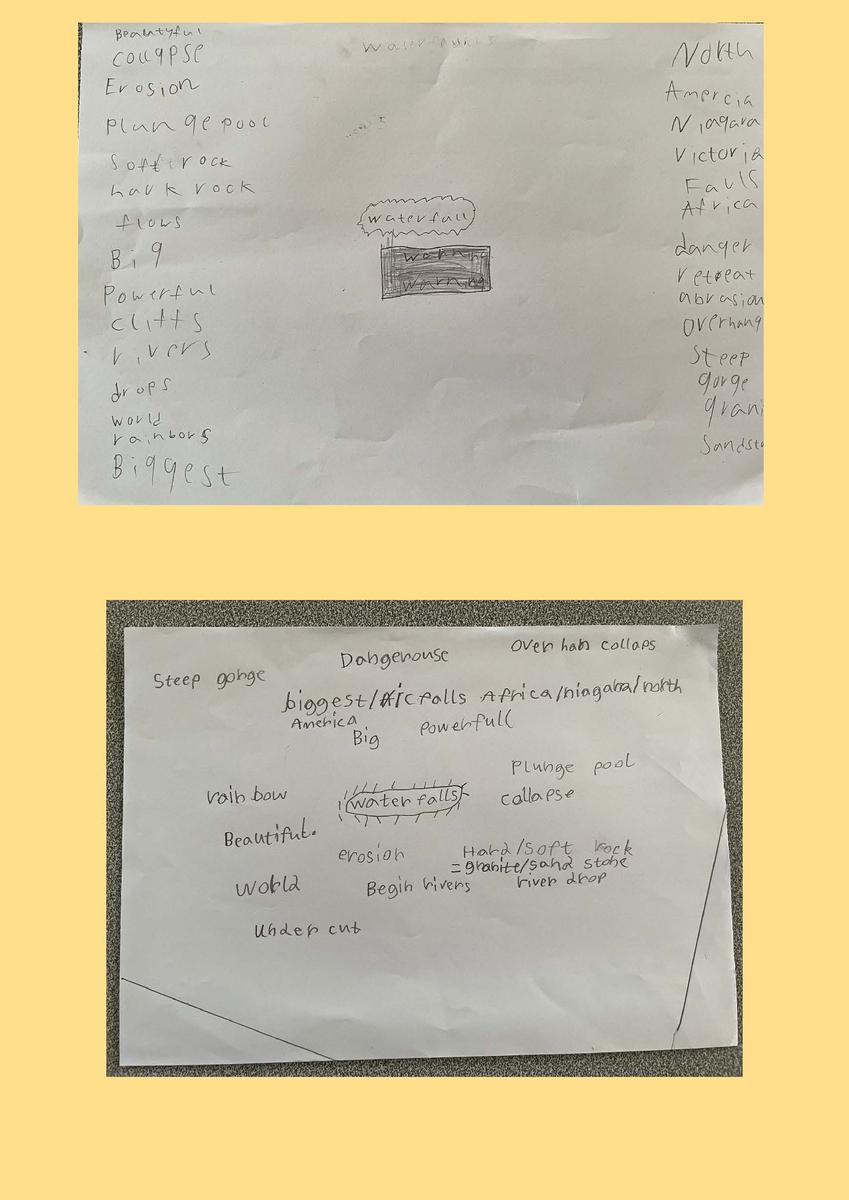 Beautyful
collapse
Erosion
plunge pool
Soft rock
hark rock
flows
Big
Powerful
cliffs
rivers
drops
world
rainbors
Biggest
Water
waterfall
warning
warning
North
Amercia
Niagara
Victoria
Falls
Africa
danger
retreat
abrasion
overhang
Steep
gorge
grani
Sandsto
Over han collaps
Dangerouse
Steep gorge
biggest/ falls Africa/niagara/north
America
Powerfull
Big
Plunge pool
rainbow
water falls
collapse
Beautiful.
erosion
Hard/Soft rock
=granite/sand stone
World
Begin rivers
river drop
Under cut